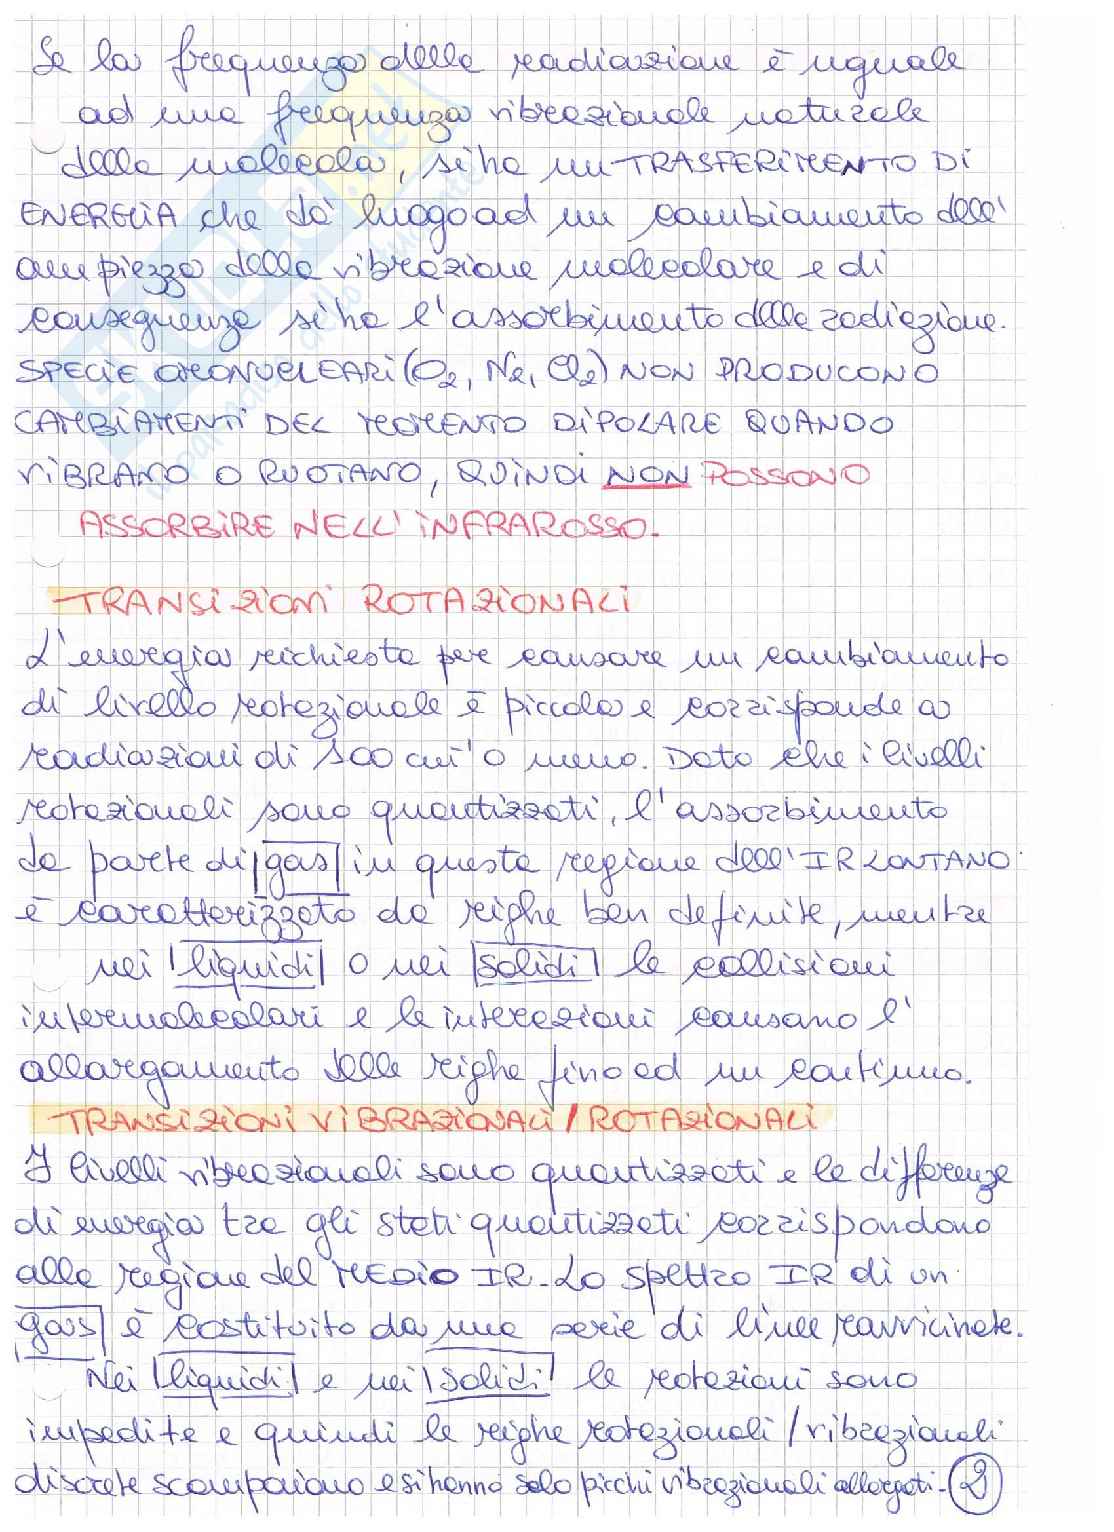 Se la frequenza della radiazione è uguale
ad una frequenza vibrazionale naturale
della molecola, si ha un TRASFERIMENTO DI
ENERGIA che dà luogo ad un cambiamento dell'
ampiezza della vibrazione molecolare e di
conseguenza si ha l'assorbimento della radiazione.
SPECIE OMONUCLEARI (O2, N2, Cl2) NON PRODUCONO
CAMBIAMENTI DEL MOMENTO DIPOLARE QUANDO
VIBRANO O RUOTANO, QUINDI NON POSSONO
ASSORBIRE NELL'INFRAROSSO.
-TRANSIZIONI ROTAZIONALI
L'energia richiesta per causare un cambiamento
di livello rotazionale è piccola e corrisponde a
radiazioni di 100 cm⁻¹ o meno. Dato che i livelli
rotazionali sono quantizzati, l'assorbimento
da parte di |gas| in questa regione dell'IR LONTANO
è caratterizzato da righe ben definite, mentre
nei |liquidi| o nei |solidi| le collisioni
intermolecolari e le interazioni causano l'
allargamento delle righe fino ad un continuo.
TRANSIZIONI VIBRAZIONALI/ROTAZIONALI
I livelli vibrazionali sono quantizzati e le differenze
di energia tra gli stati quantizzati corrispondono
alla regione del MEDIO IR. Lo spettro IR di un
gas| è costituito da una serie di linee ravvicinate.
Nei |liquidi| e nei |solidi| le rotazioni sono
impedite e quindi le righe rotazionali/vibrazionali
discrete scompaiono e si hanno solo picchi vibrazionali allargati. 2